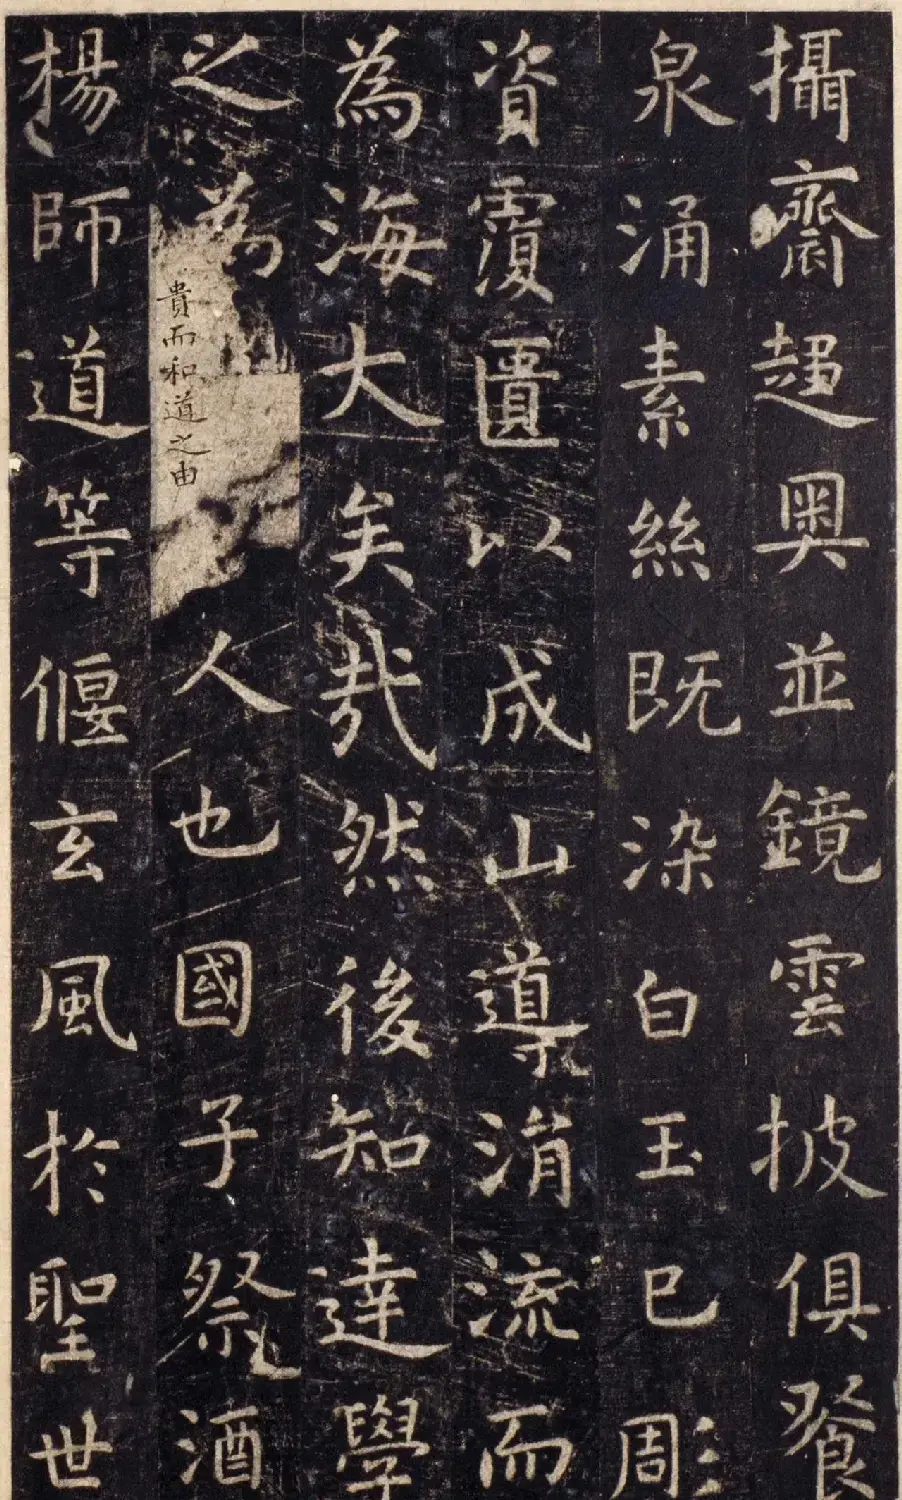 攝齋趨奧並鏡雲披俱餐
泉涌素絲既染白玉已彫
資覆匱以成山導涓流而
為海大矣哉然後知達學
之為
貴而和道之由
人也國子祭酒
楊師道等偃玄風於聖世